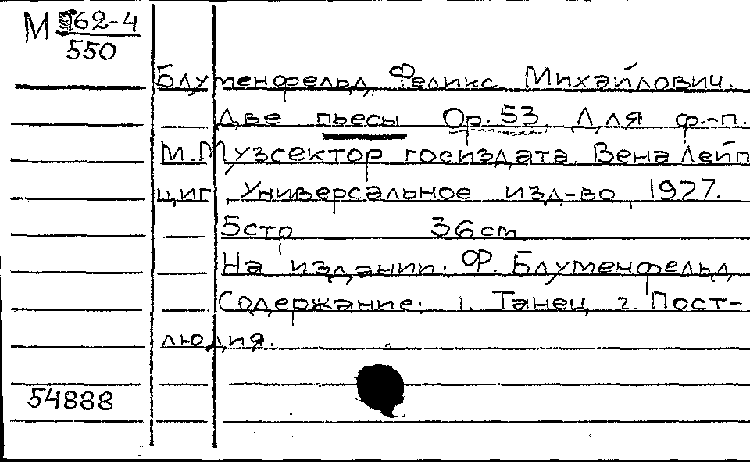 М 62-4
550
Блуменфельд Феликс Михайлович.
Две пьесы Op. 53. Для ф.-п.
М. Музсектор госиздата. Вена Лейп
циг, Универсальное изд-во, 1927.
5стр 36cm
На издании: Ф. Блуменфельд
Содержание: 1. Танец 2. Пост-
людия.
54888